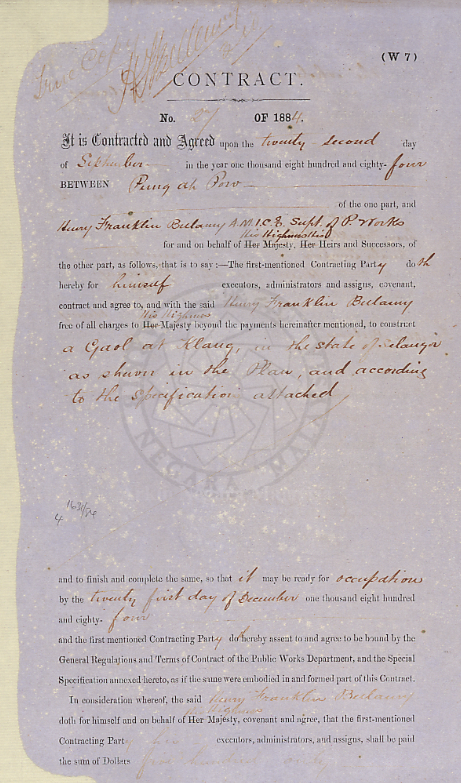 True Copy
(W 7)
CONTRACT.
No. 27 OF 1884.
It is Contracted and Agreed upon the twenty-second day
of September in the year one thousand eight hundred and eighty-four
BETWEEN Fung ah Pow
of the one part, and
Henry Franklin Bellamy A.M.I.C.E. Supt. of P. Works
His Highness the
for and on behalf of Her Majesty, Her Heirs and Successors, of
the other part, as follows, that is to say:—The first-mentioned Contracting Party doth
hereby for himself executors, administrators and assigns, covenant,
contract and agree to, and with the said Henry Franklin Bellamy
His Highness
free of all charges to Her Majesty beyond the payments hereinafter mentioned, to construct
a Gaol at Klang, in the State of Selangor
as shewn in the Plan, and according
to the specification attached
NEGARA
4 1631/84
and to finish and complete the same, so that it may be ready for occupation
by the twenty first day of December one thousand eight hundred
and eighty-four
and the first mentioned Contracting Party do hereby assent to and agree to be bound by the
General Regulations and Terms of Contract of the Public Works Department, and the Special
Specification annexed hereto, as if the same were embodied in and formed part of this Contract.
In consideration whereof, the said Henry Franklin Bellamy
His Highness
doth for himself and on behalf of Her Majesty, covenant and agree, that the first-mentioned
Contracting Party his executors, administrators, and assigns, shall be paid
the sum of Dollars five hundred